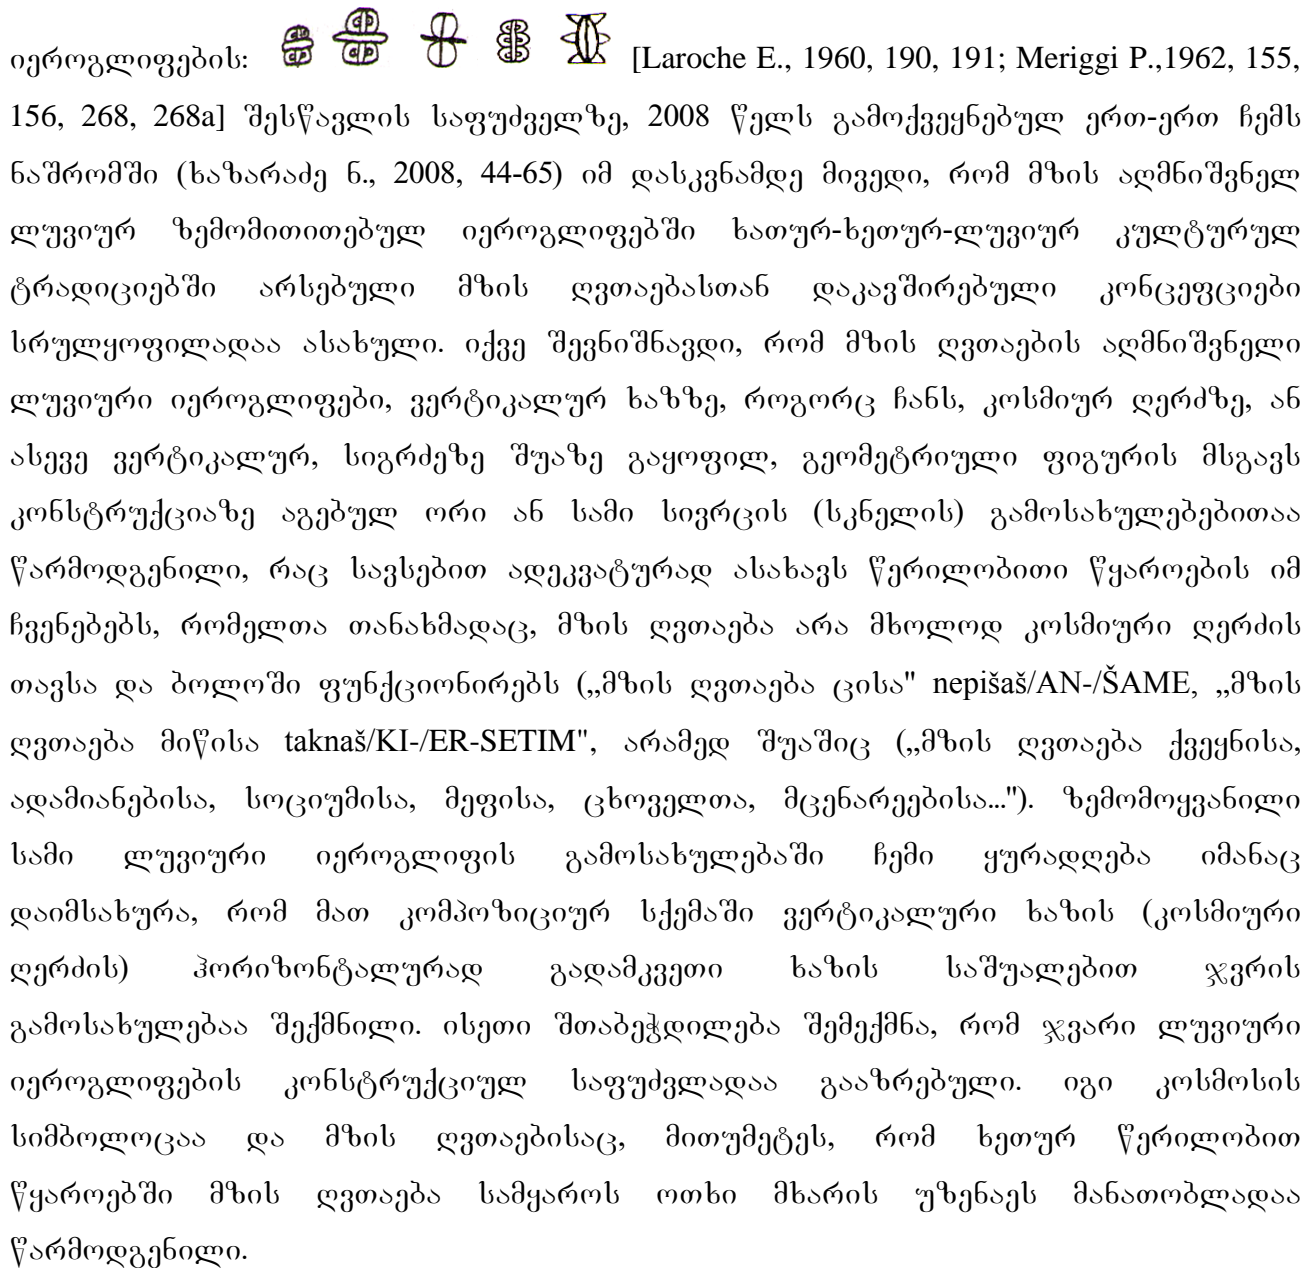 იეროგლიფების: [Laroche E., 1960, 190, 191; Meriggi P.,1962, 155,
156, 268, 268a] შესწავლის საფუძველზე, 2008 წელს გამოქვეყნებულ ერთ-ერთ ჩემს
ნაშრომში (ხაზარაძე ნ., 2008, 44-65) იმ დასკვნამდე მივედი, რომ მზის აღმნიშვნელ
ლუვიურ ზემომითითებულ იეროგლიფებში ხათურ-ხეთურ-ლუვიურ კულტურულ
ტრადიციებში არსებული მზის ღვთაებასთან დაკავშირებული კონცეფციები
სრულყოფილადაა ასახული. იქვე შევნიშნავდი, რომ მზის ღვთაების აღმნიშვნელი
ლუვიური იეროგლიფები, ვერტიკალურ ხაზზე, როგორც ჩანს, კოსმიურ ღერძზე, ან
ასევე ვერტიკალურ, სიგრძეზე შუაზე გაყოფილ, გეომეტრიული ფიგურის მსგავს
კონსტრუქციაზე აგებულ ორი ან სამი სივრცის (სკნელის) გამოსახულებებითაა
წარმოდგენილი, რაც სავსებით ადეკვატურად ასახავს წერილობითი წყაროების იმ
ჩვენებებს, რომელთა თანახმადაც, მზის ღვთაება არა მხოლოდ კოსმიური ღერძის
თავსა და ბოლოში ფუნქციონირებს („მზის ღვთაება ცისა" nepišaš/AN-/ŠAME, „მზის
ღვთაება მიწისა taknaš/KI-/ER-SETIM", არამედ შუაშიც („მზის ღვთაება ქვეყნისა,
ადამიანებისა, სოციუმისა, მეფისა, ცხოველთა, მცენარეებისა..."). ზემომოყვანილი
სამი ლუვიური იეროგლიფის გამოსახულებაში ჩემი ყურადღება იმანაც
დაიმსახურა, რომ მათ კომპოზიციურ სქემაში ვერტიკალური ხაზის (კოსმიური
ღერძის) ჰორიზონტალურად გადამკვეთი ხაზის საშუალებით ჯვრის
გამოსახულებაა შექმნილი. ისეთი შთაბეჭდილება შემექმნა, რომ ჯვარი ლუვიური
იეროგლიფების კონსტრუქციულ საფუძვლადაა გააზრებული. იგი კოსმოსის
სიმბოლოცაა და მზის ღვთაებისაც, მითუმეტეს, რომ ხეთურ წერილობით
წყაროებში მზის ღვთაება სამყაროს ოთხი მხარის უზენაეს მანათობლადაა
წარმოდგენილი.